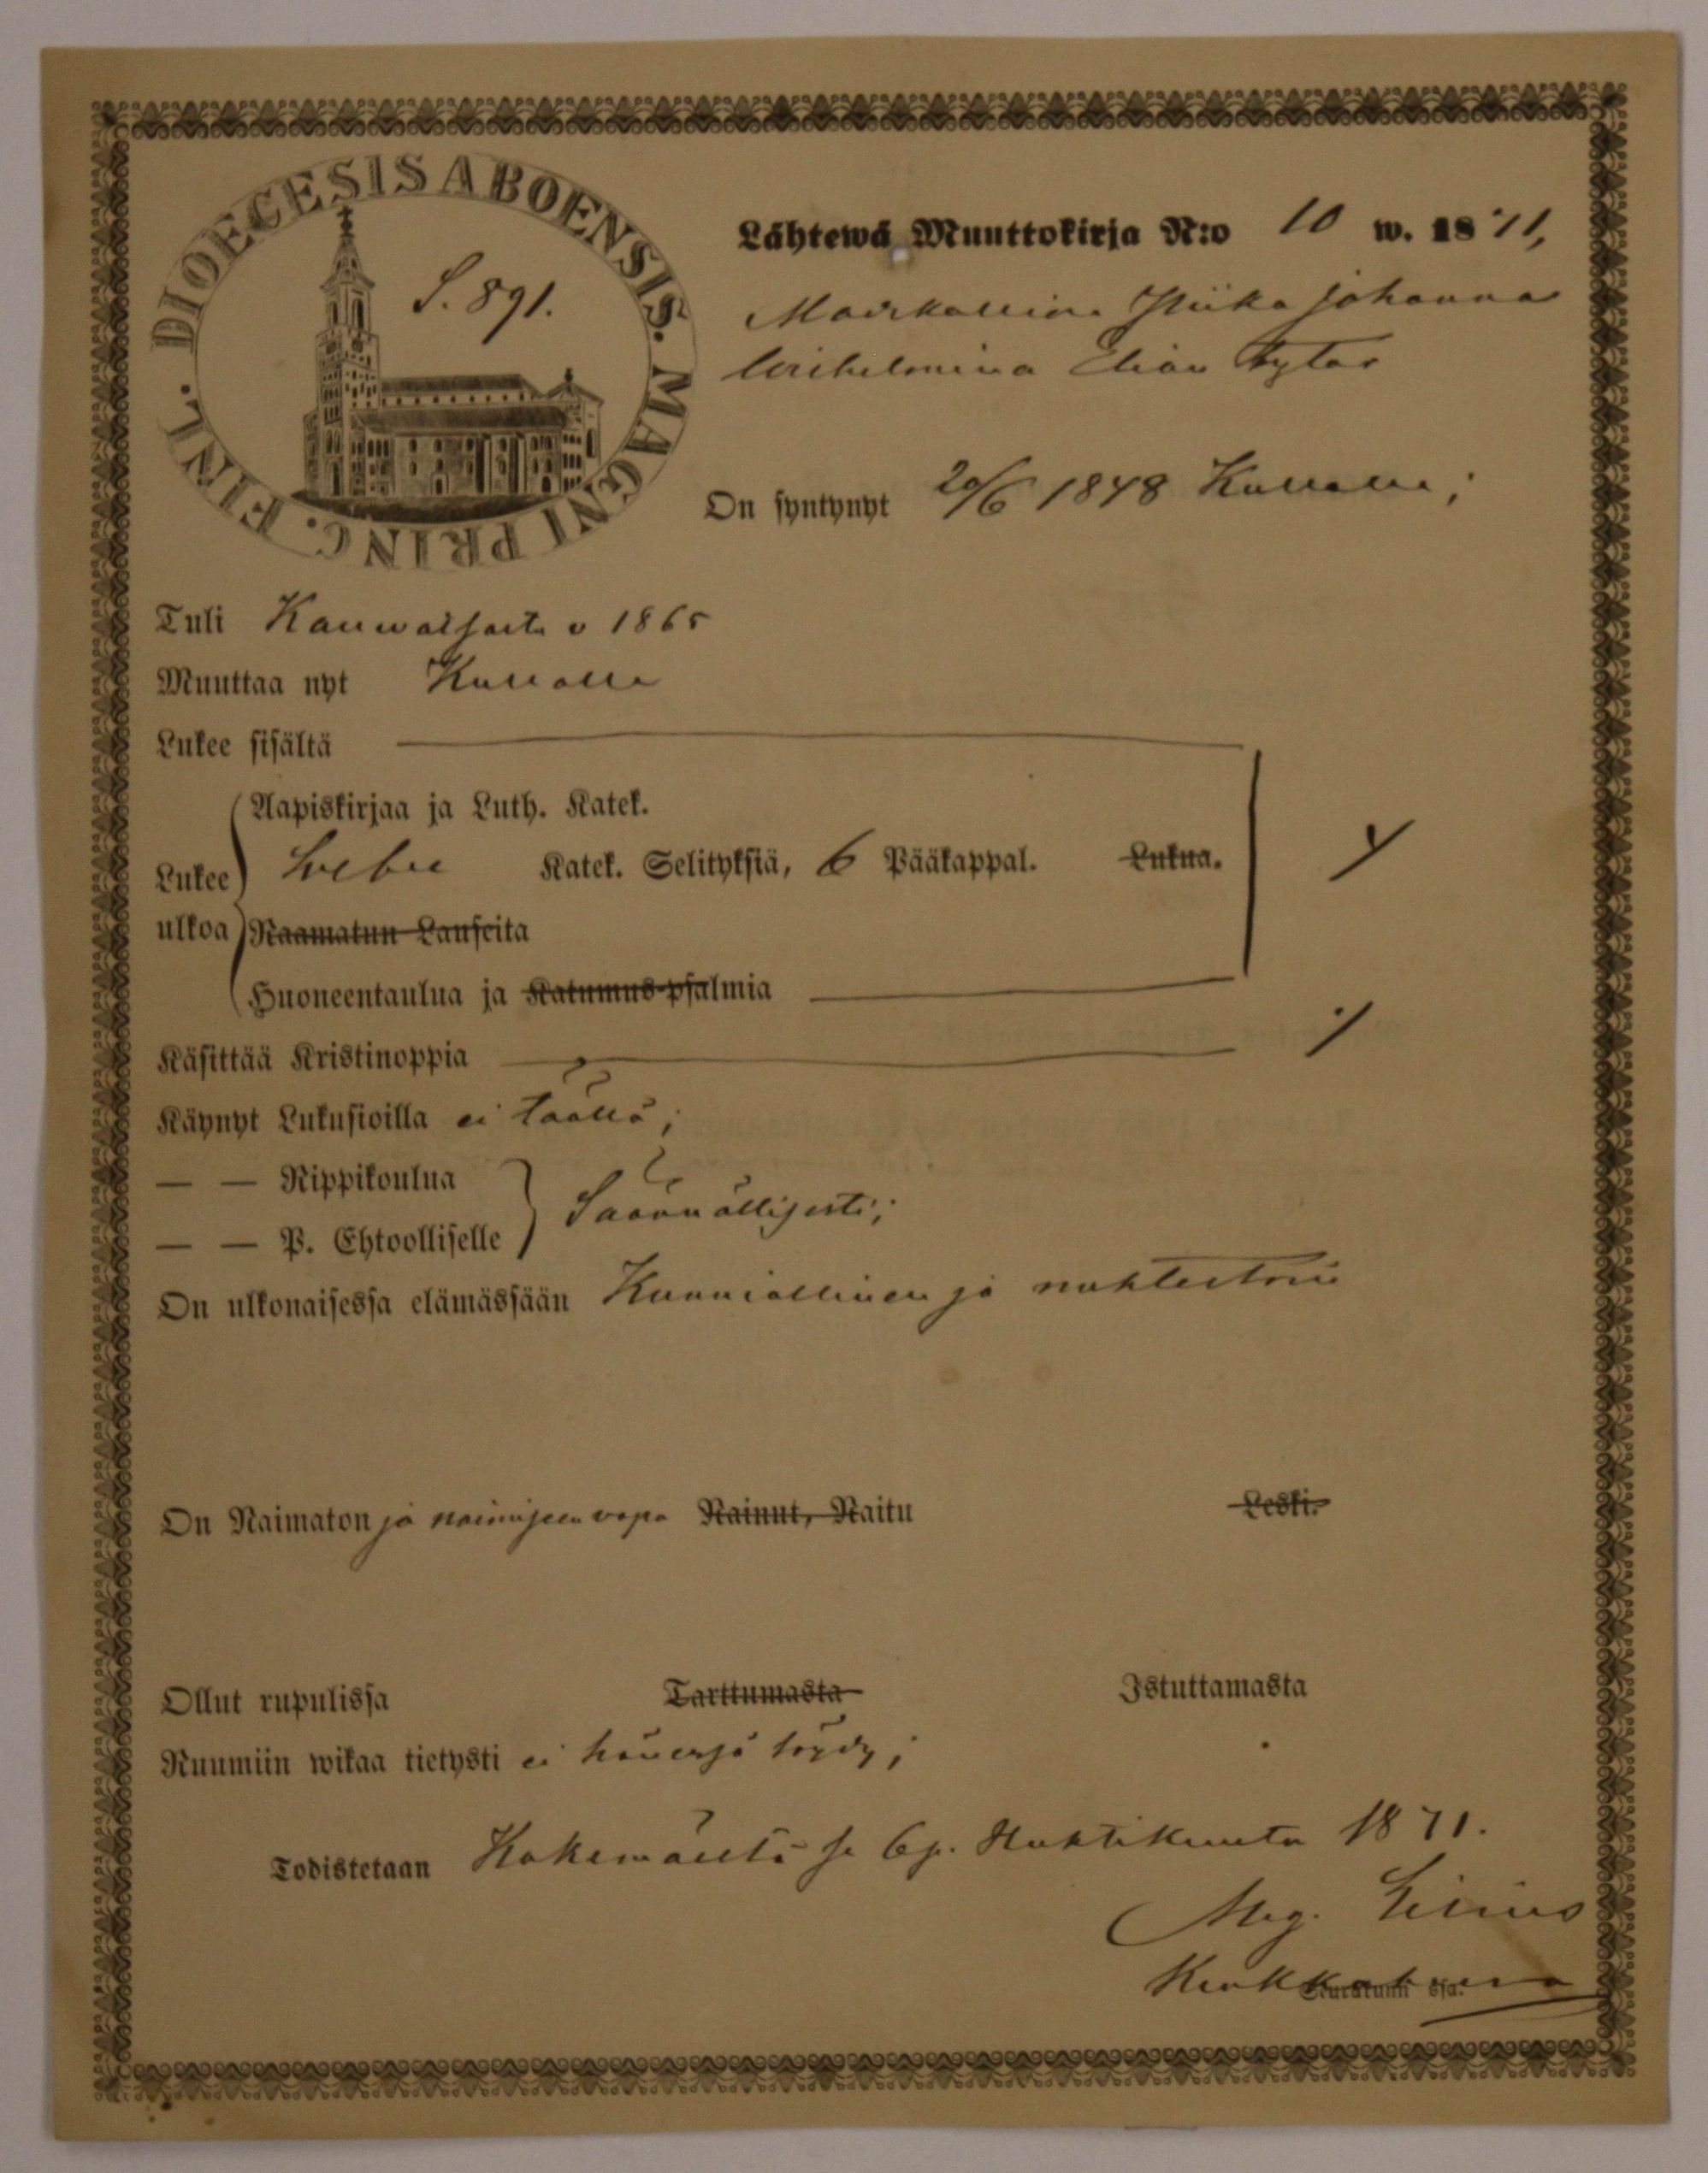 DIOECESIS ABOENSIS. MAGNI PRINC. FINL.
S. 891.
Lähtewä Muuttokirja N:o 10 w. 1871,
Johanna
Wilhelmina Elian tytär
On syntynyt 20/6 1848 Kullalla;
Tuli Kauwatsasta v 1865
Muuttaa nyt Kullalle
Lukee sisältä
Aapiskirjaa ja Luth. Katek.
Lukee ulkoa Svebee Katek. Selityksiä, 6 Pääkappal. Lukua.
Raamatun Lauseita
Huoneentaulua ja Katumus-psalmia
Käsittää Kristinoppia
Käynyt Lukusioilla ei täällä;
— — Rippikoulua
— — P. Ehtoolliselle Säännöllisesti;
On ulkonaisessa elämässään Kunniallinen ja nuhteeton
On Naimaton ja naimiseen vapa Nainut, Naitu Leski.
Ollut rupulissa Tarttumasta Istuttamasta
Ruumiin wikaa tietysti ei hänessä löydy;
Todistetaan Kokemäeltä se 6 p. Huhtikuuta 1871.
Kirkkoherra
Seurakunn ssa.